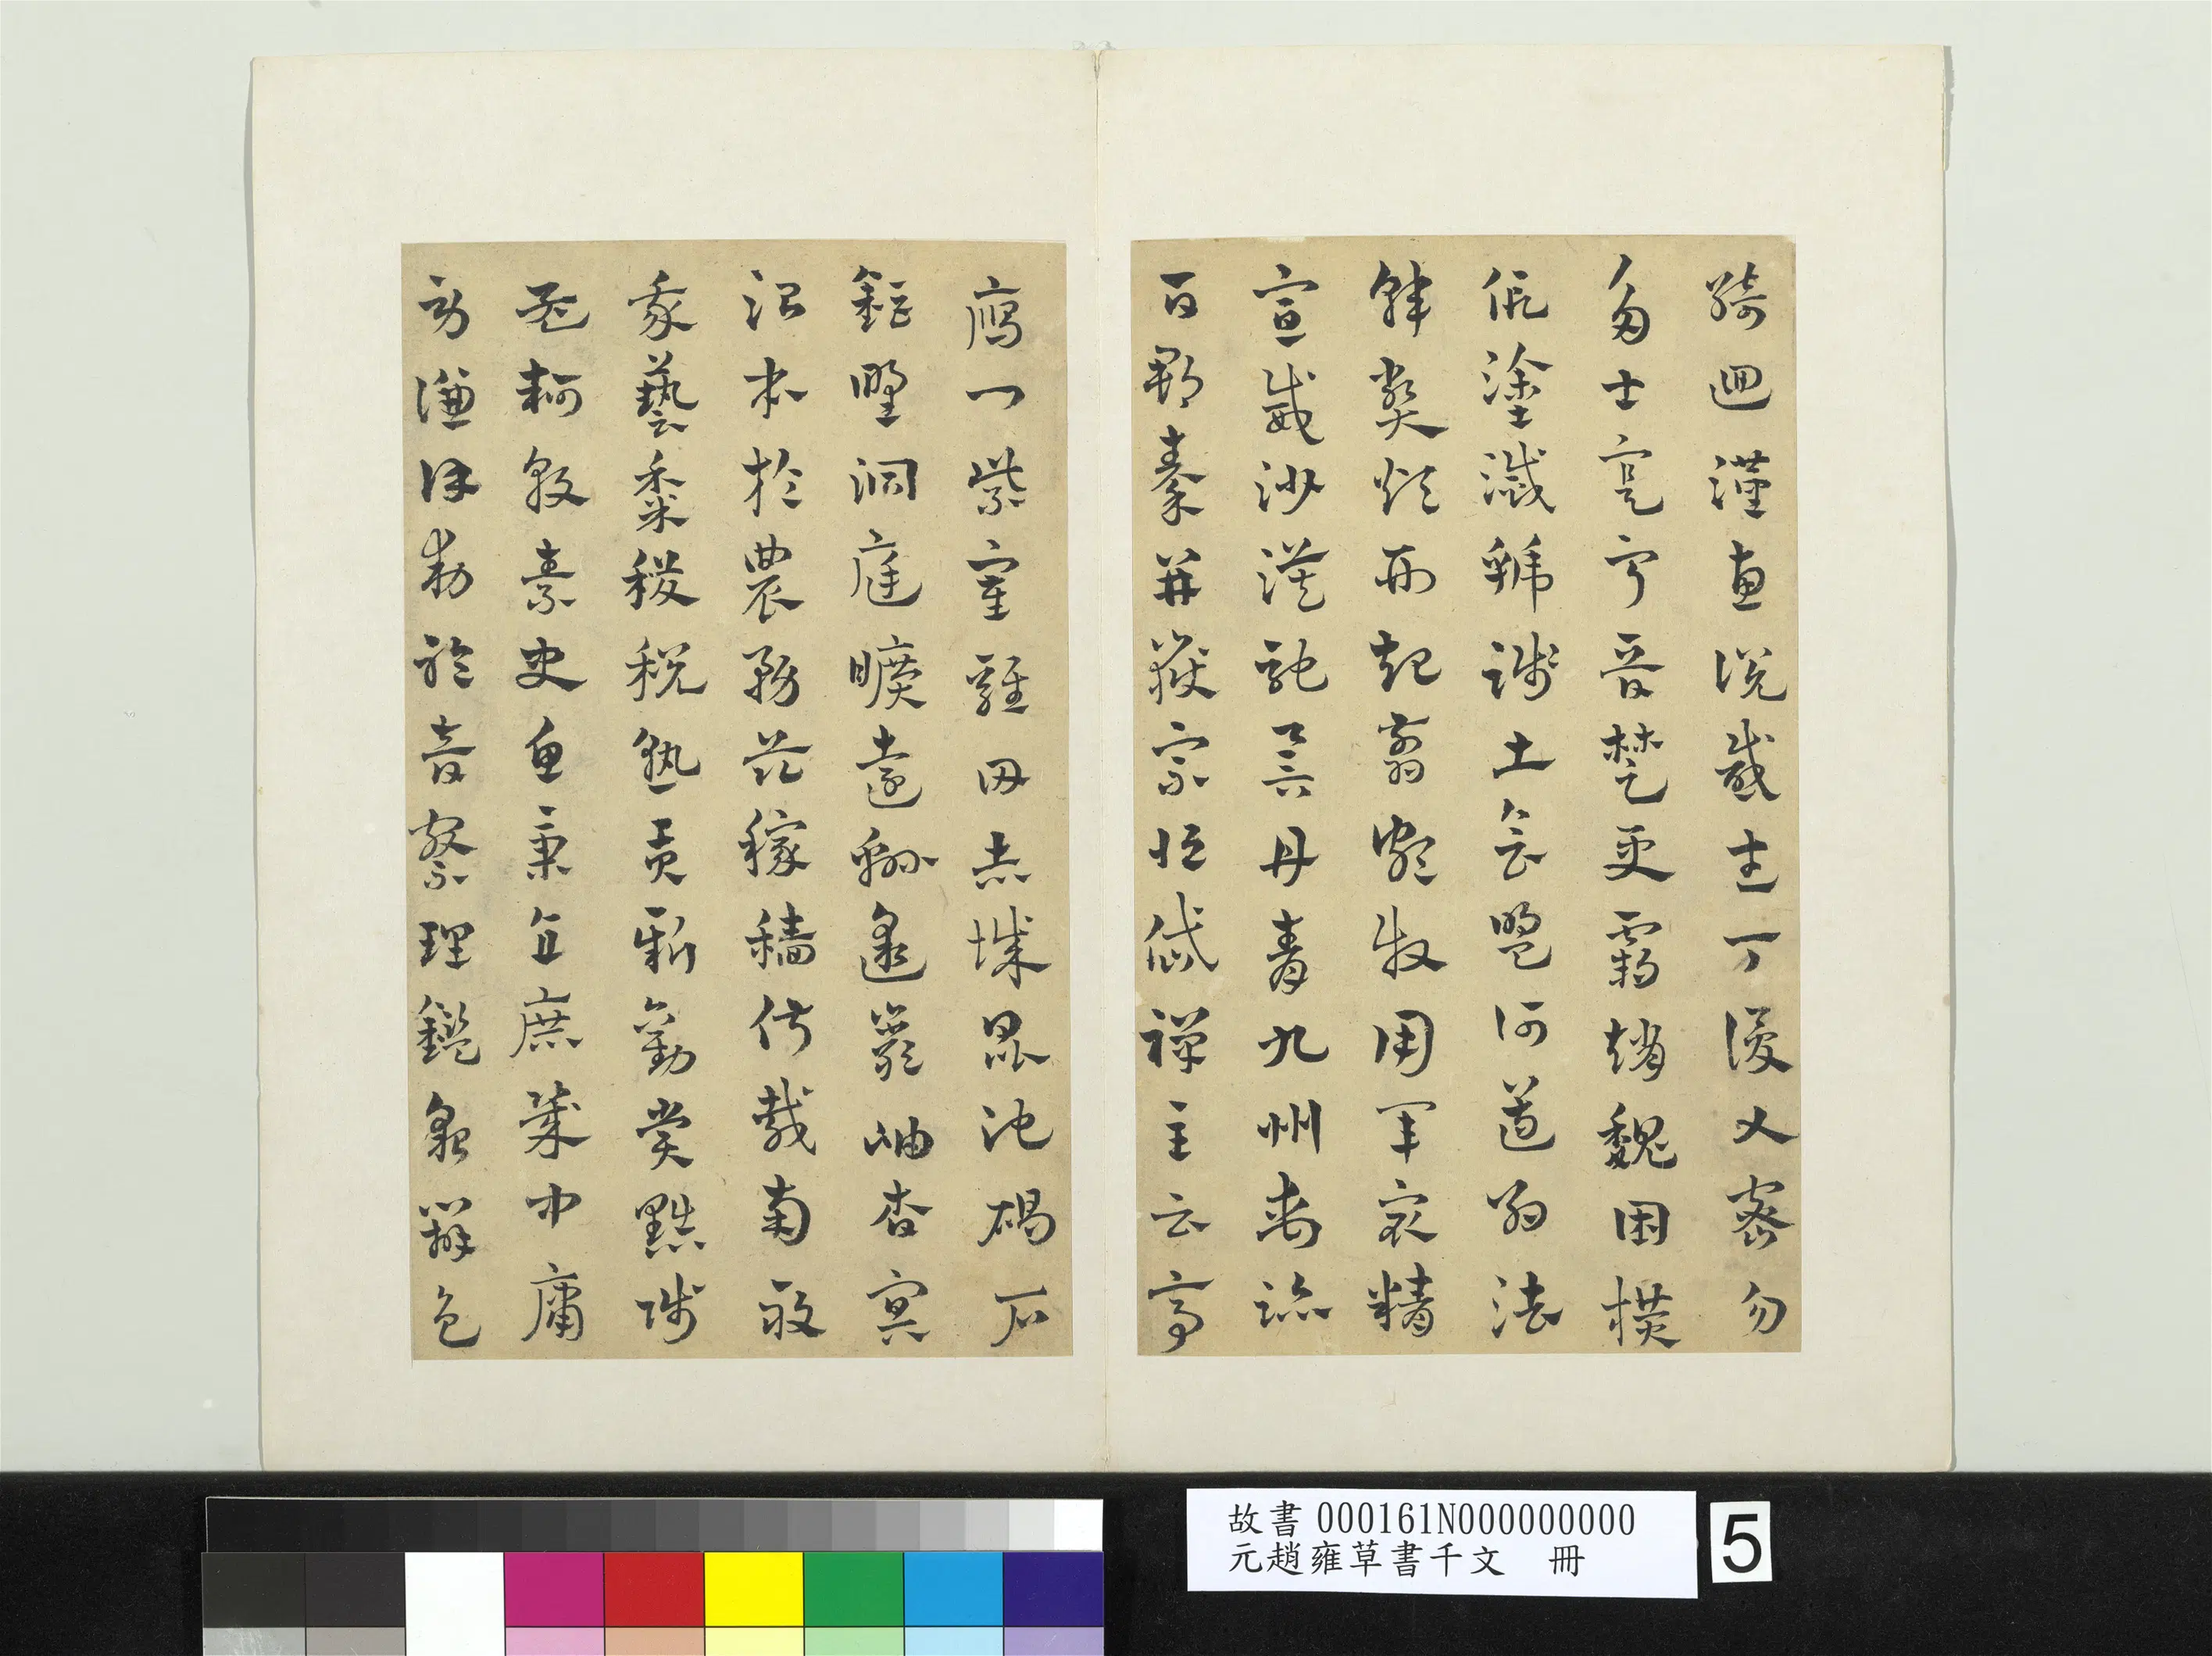 綺迴漢惠說感武丁俊乂密勿
多士寔寧晉楚更霸趙魏困橫
假塗滅虢踐土會盟何遵約法
韓弊煩刑起翦頗牧用軍最精
宣威沙漠馳譽丹青九州禹跡
百郡秦并嶽宗恒岱禪主云亭
鴈門紫塞雞田赤城昆池碣石
鉅野洞庭曠遠緜邈巖岫杳冥
治本於農務茲稼穡俶載南畝
我藝黍稷稅熟貢新勸賞黜陟
孟軻敦素史魚秉直庶幾中庸
勞謙謹勅聆音察理鑑貌辨色
故書000161N000000000
元趙雍草書千文 冊
5